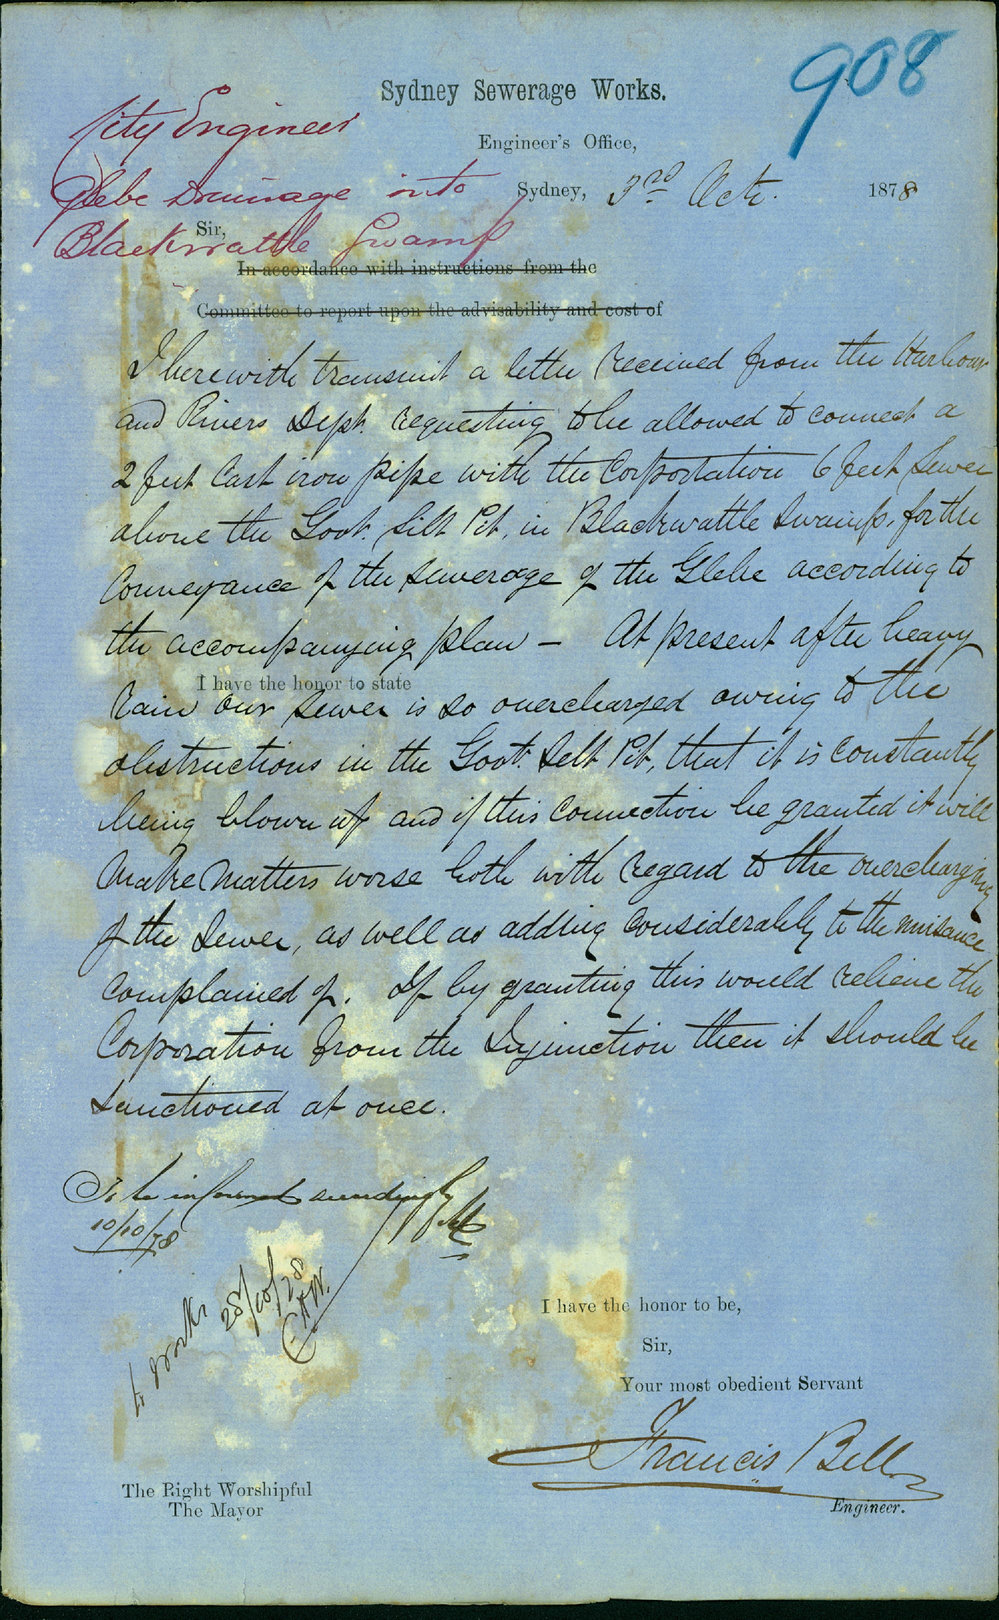 908
Sydney Sewerage Works.
City Engineer
Engineer's Office,
Glebe Drainage into
Sydney, 3rd Oct. 1878
Sir,
Blackwattle Swamp
In accordance with instructions from the
Committee to report upon the advisability and cost of
I herewith transmit a letter received from the Harbour
and Rivers Dept. requesting to be allowed to connect a
2 feet Cast iron pipe with the Corporation 6 feet Sewer
above the Govt. Silt Pit, in Blackwattle Swamp, for the
Conveyance of the Sewerage of the Glebe according to
the accompanying plan – At present after heavy
I have the honor to state
Rain our Sewer is so overcharged owing to the
obstructions in the Govt. Silt Pit, that it is constantly
being blown up and if this Connection be granted it will
make matters worse both with regard to the overcharging
of the Sewer, as well as adding considerably to the nuisance
complained of. If by granting this would relieve the
Corporation from the Injunction then it should be
sanctioned at once.
To be informed accordingly
10/10/78
to Works
28/10/78
I have the honor to be,
Sir,
Your most obedient Servant
Francis Bell
Engineer.
The Right Worshipful
The Mayor